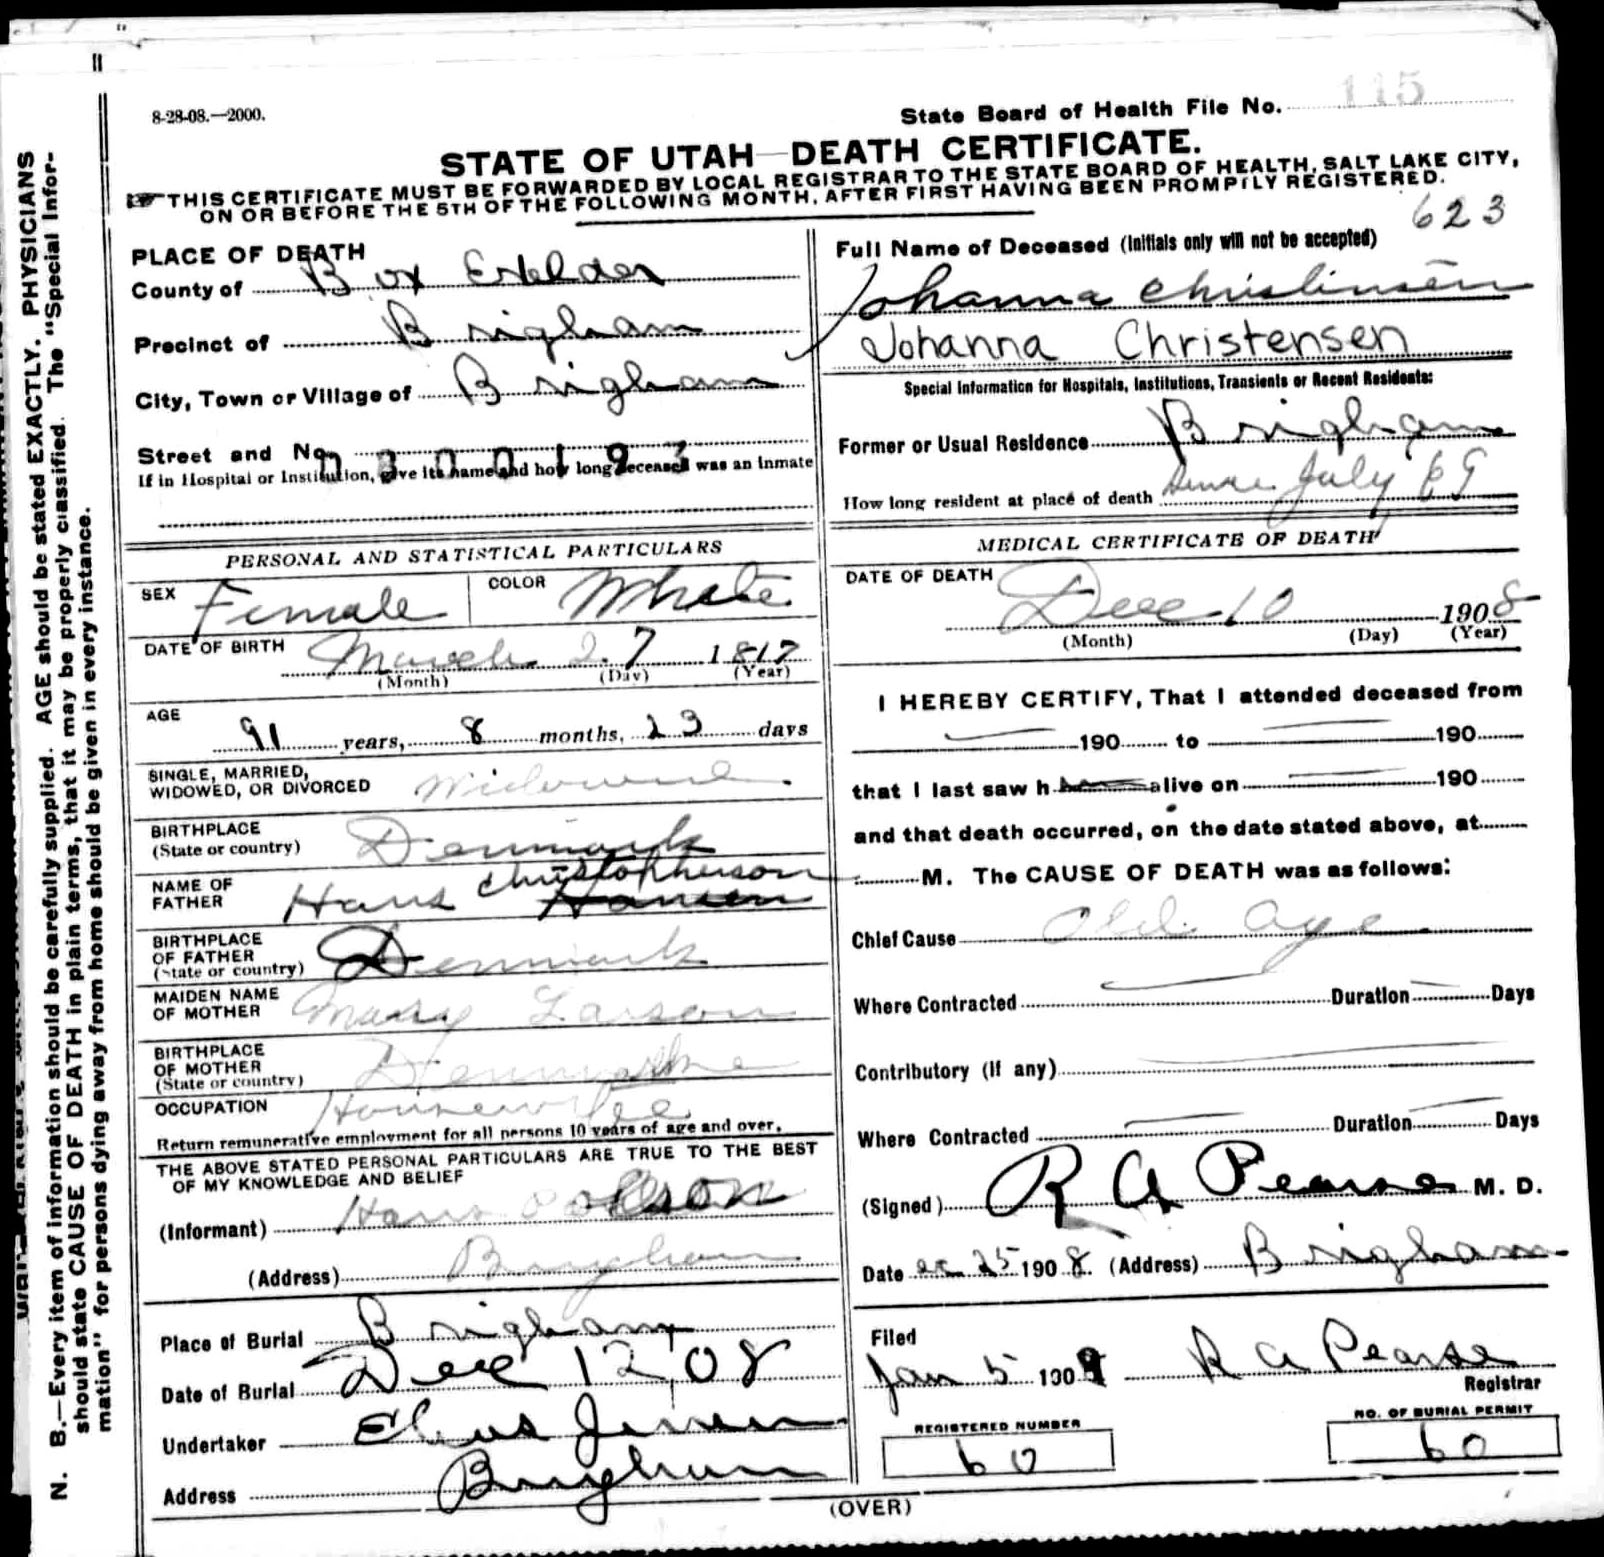 8-28-08.—2000.
State Board of Health File No. 115
STATE OF UTAH—DEATH CERTIFICATE.
THIS CERTIFICATE MUST BE FORWARDED BY LOCAL REGISTRAR TO THE STATE BOARD OF HEALTH, SALT LAKE CITY,
ON OR BEFORE THE 5TH OF THE FOLLOWING MONTH, AFTER FIRST HAVING BEEN PROMPTLY REGISTERED.
623
PLACE OF DEATH
County of Box Elder
Precinct of Brigham
City, Town or Village of Brigham
Street and No.
If in Hospital or Institution, give its name and how long deceased was an Inmate
Full Name of Deceased (Initials only will not be accepted)
Johanna Christinsen
Johanna Christensen
Special Information for Hospitals, Institutions, Transients or Recent Residents:
Former or Usual Residence Brigham
How long resident at place of death Since July 69
PERSONAL AND STATISTICAL PARTICULARS
SEX Female COLOR White
DATE OF BIRTH March 27 1817
(Month) (Day) (Year)
AGE
91 years, 8 months, 23 days
SINGLE, MARRIED,
WIDOWED, OR DIVORCED Widowed
BIRTHPLACE
(State or country) Denmark
NAME OF
FATHER Hans Christopherson Hansen
BIRTHPLACE
OF FATHER
(State or country) Denmark
MAIDEN NAME
OF MOTHER Mary Larson
BIRTHPLACE
OF MOTHER
(State or country) Denmark
OCCUPATION Housewife
Return remunerative employment for all persons 10 years of age and over.
THE ABOVE STATED PERSONAL PARTICULARS ARE TRUE TO THE BEST
OF MY KNOWLEDGE AND BELIEF
(Informant) Hans
(Address) Brigham
Place of Burial Brigham
Date of Burial Dec 12, 08
Undertaker Elias Jensen
Address Brigham
MEDICAL CERTIFICATE OF DEATH
DATE OF DEATH
Dec 10 1908
(Month) (Day) (Year)
I HEREBY CERTIFY, That I attended deceased from
190 to 190
that I last saw h alive on 190
and that death occurred, on the date stated above, at
M. The CAUSE OF DEATH was as follows:
Chief Cause Old Age
Where Contracted Duration Days
Contributory (if any)
Where Contracted Duration Days
(Signed) R A Pearse M. D.
Date 25 1908. (Address) Brigham
Filed
Jan 5 1909 R A Pearse
Registrar
REGISTERED NUMBER
60
NO. OF BURIAL PERMIT
60
(OVER)
N. B.—Every item of information should be carefully supplied. AGE should be stated EXACTLY. PHYSICIANS
should state CAUSE OF DEATH in plain terms, that it may be properly classified. The "Special Infor-
mation" for persons dying away from home should be given in every instance.